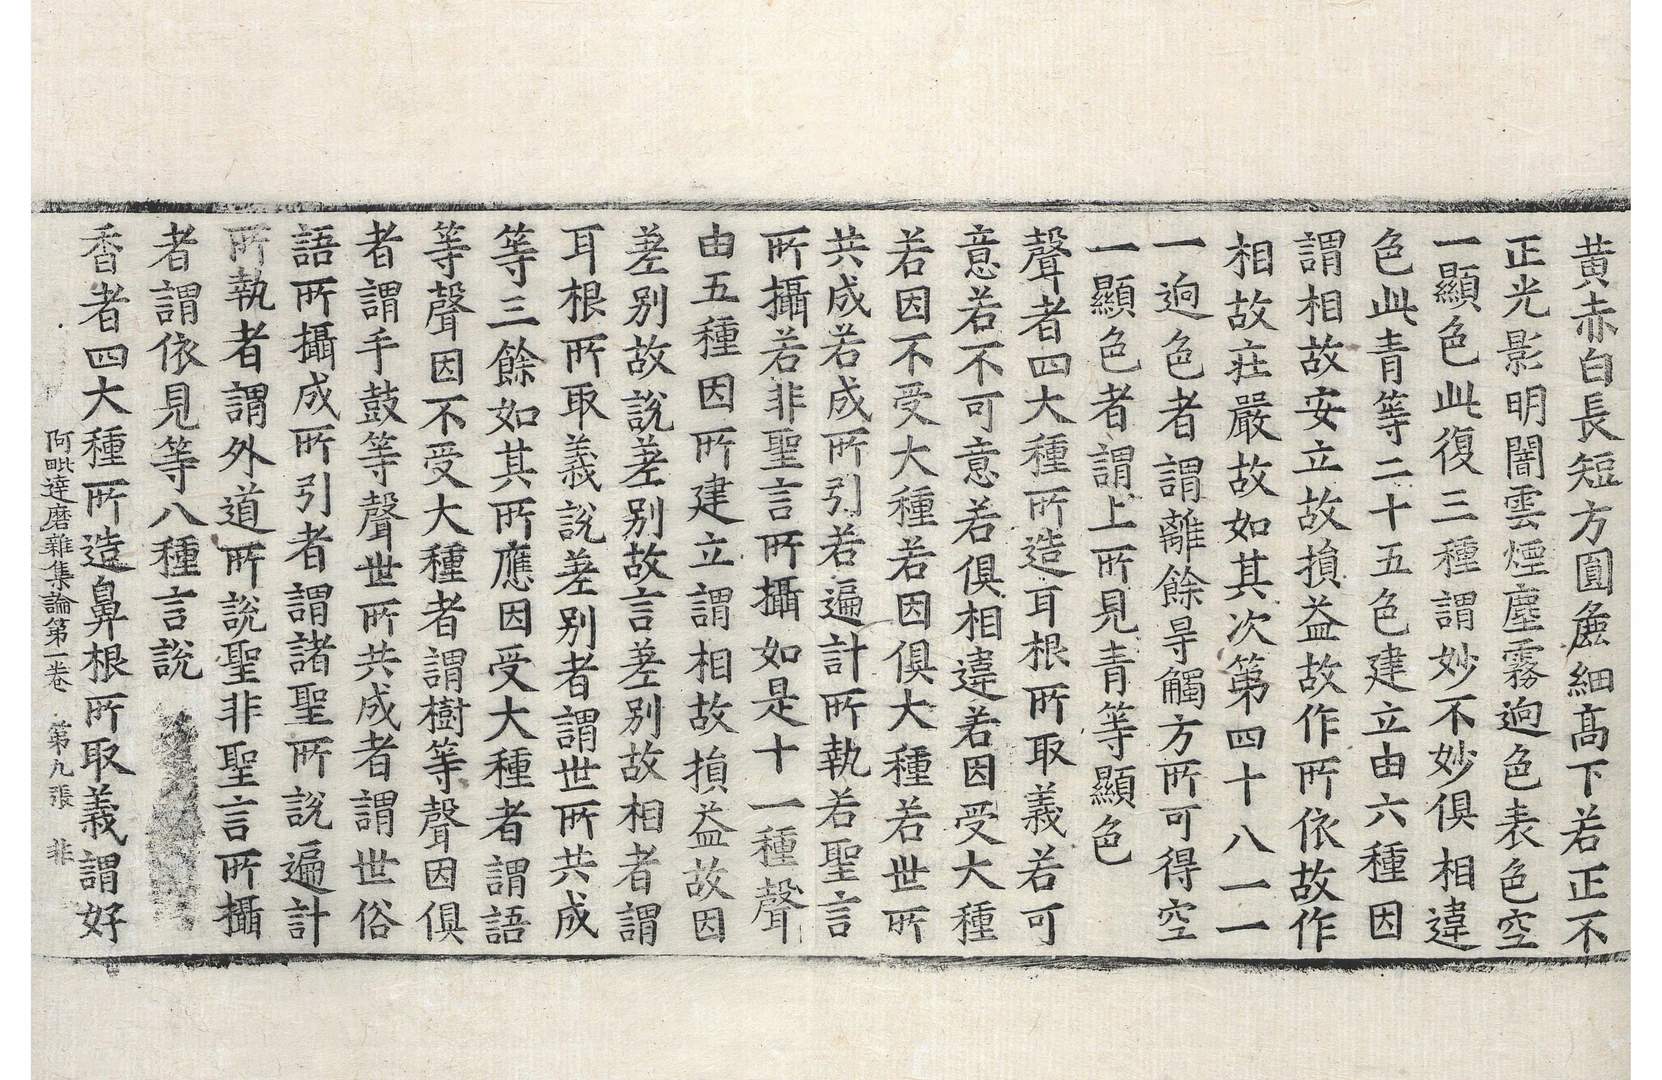 黃赤白長短方圓麁細高下若正不
正光影明闇雲煙塵霧逈色表色空
一顯色此復三種謂妙不妙俱相違
色此青等二十五色建立由六種因
謂相故安立故損益故作所依故作
相故莊嚴故如其次第四十八一一
一逈色者謂離餘㝵觸方所可得空
一顯色者謂上所見青等顯色
聲者四大種所造耳根所取義若可
意若不可意若俱相違若因受大種
若因不受大種若因俱大種若世所
共成若成所引若遍計所執若聖言
所攝若非聖言所攝如是十一種聲
由五種因所建立謂相故損益故因
差別故說差別故言差別故相者謂
耳根所取義說差別者謂世所共成
等三餘如其所應因受大種者謂語
等聲因不受大種者謂樹等聲因俱
者謂手鼓等聲世所共成者謂世俗
語所攝成所引者謂諸聖所說遍計
所執者謂外道所說聖非聖言所攝
者謂依見等八種言說
香者四大種所造鼻根所取義謂好
阿毗達磨雜集論第一卷 第九張 非